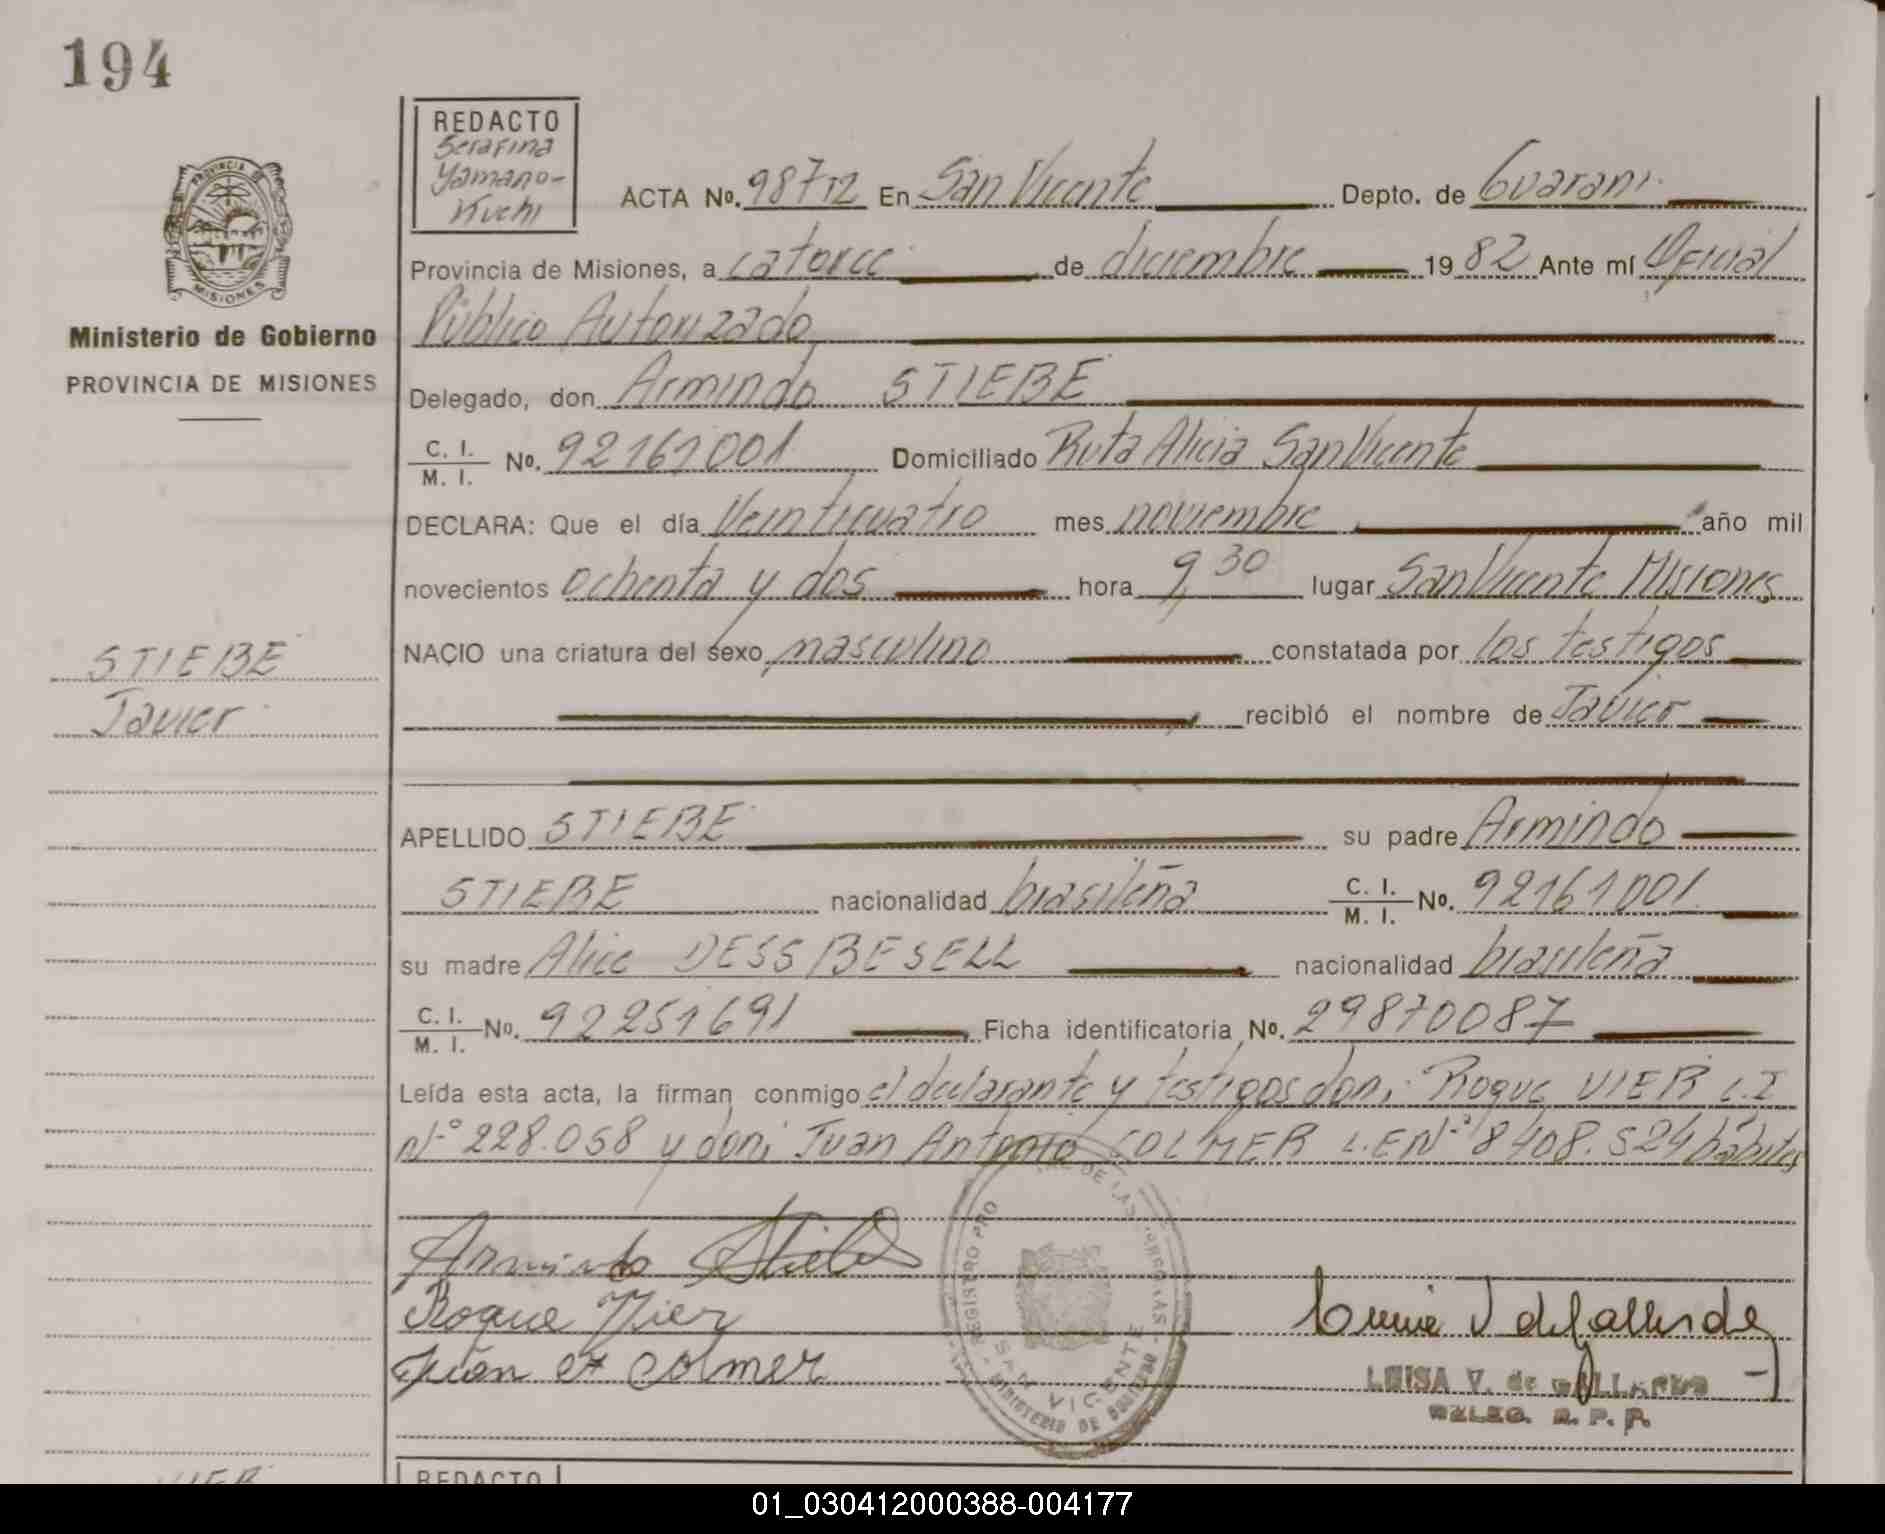 194
REDACTO
Serafina
Yamano-
Kuchi
ACTA No. 98712 En San Vicente Depto. de Guarani
Provincia de Misiones, a catorce de diciembre 1982 Ante mí Oficial
Público Autorizado
Delegado, don Armindo STIEBE
C. I. / M. I. No. 92161001 Domiciliado Ruta Alicia San Vicente
DECLARA: Que el día Veinticuatro mes noviembre año mil
novecientos ochenta y dos hora 9,30 lugar San Vicente Misiones
NACIO una criatura del sexo masculino constatada por los testigos
recibió el nombre de Javier
APELLIDO STIEBE su padre Armindo
STIEBE nacionalidad brasileña C. I. / M. I. No. 92161001
su madre Alice DESSBESELL nacionalidad brasileña
C. I. / M. I. No. 92251691 Ficha identificatoria No. 29870087
Leída esta acta, la firman conmigo el declarante y testigos don: Roque VIER C.I
Nº 228.058 y don: Juan Antonio COLMER L.E Nº 8408.524 hábiles
Armindo Stiebe
Roque Vier
Juan A Colmer
LUISA V. de GALLARDO
DELEG. R. P. P.
PROVINCIA DE
MISIONES
Ministerio de Gobierno
PROVINCIA DE MISIONES
STIEBE
Javier
REGISTRO PRO DE LAS PERSONAS
SAN VICENTE
MINISTERIO DE GOBIERNO
VIER
REDACTO
01_030412000388-004177